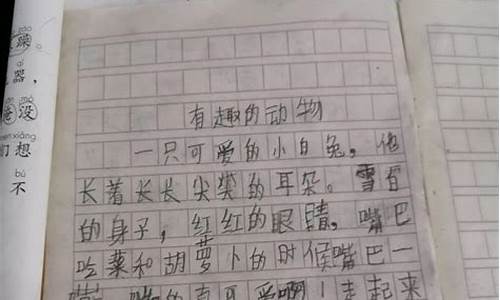 有趣的动物
一只可爱的小白兔，他
长着长长尖尖的耳朵。雪白
的身子，红红的眼睛，嘴巴
吃菜和胡萝卜的时候嘴巴一
的真可爱啊！走起来
躁
器，
没
们想
bú
不